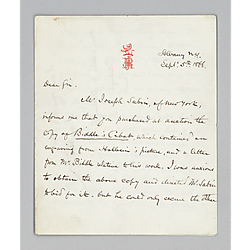 Albany N.Y.
Sept. 5th, 1886.
Dear Sir.
Mr. Joseph Sabin, of New York,
informs one that you purchased at auction the
copy of Biddle's Cabot which contained an
engraving from Holbein's picture, and a letter
from Mr. Biddle relative to his work. I was anxious
to obtain the above copy and directed Mr. Sabin
to bid for it – but he could only secure the other